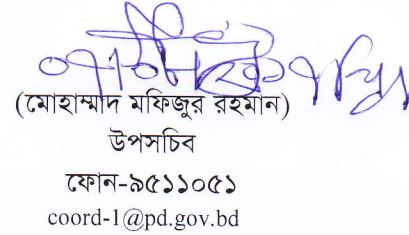 (মোহাম্মাদ মফিজুর রহমান)
উপসচিব
ফোন-৯৫১১০৫১
coord-1@pd.gov.bd